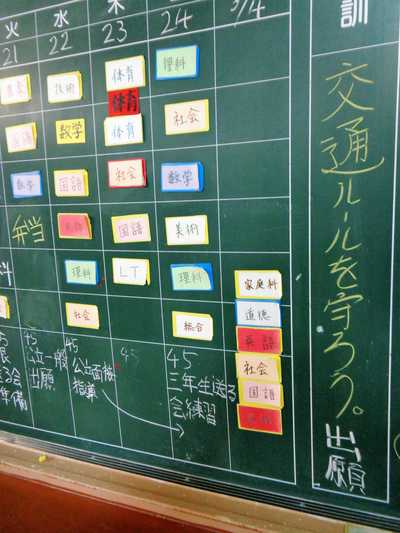 火 水 木
21 22 23 24 3/4
技術 体育 理科
体育
数学 体育 社会
数学 国語 社会 数学
弁当 国語 美術
理科 LT 理科
社会 総合
家庭科
道徳
英語
社会
国語
45
一般
出願
45
公立面接
指導
45
45
三年生送る
会練習
訓
交通ルールを守ろう。
出願